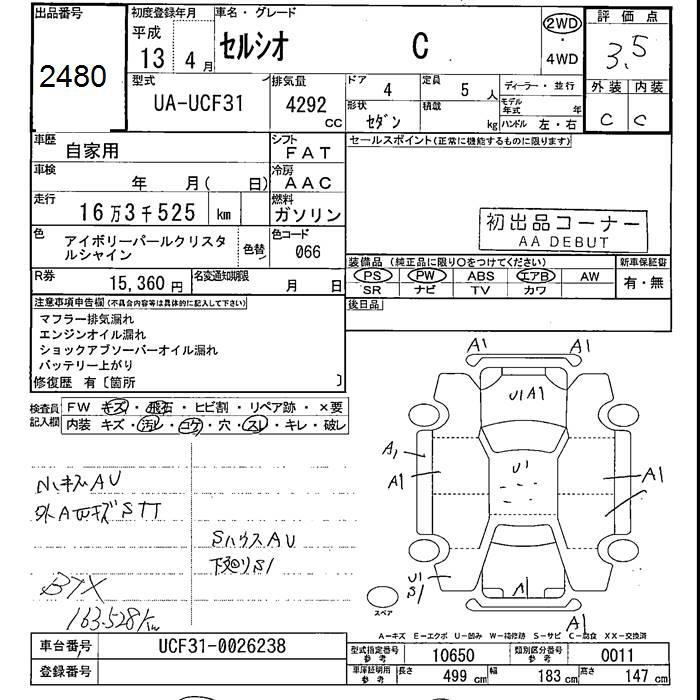 出品番号
2480
初度登録年月
平成
13 4 月
車名・グレード
セルシオ C
2WD
・
4WD
評価点
3.5
外装 内装
C C
型式
UA-UCF31
排気量
4292 CC
ドア
4
定員
5 人
形状
セダン
積載
kg
ディーラー・並行
モデル年式 年
ハンドル 左・右
車歴
自家用
シフト
FAT
車検
年 月( 日)
冷房
AAC
走行
16万3千525 km
燃料
ガソリン
色
アイボリーパールクリスタ
ルシャイン
色替
色コード
066
R券
15,360 円
名変通知期限
月 日
セールスポイント(正常に機能するものに限ります)
初出品コーナー
AA DEBUT
装備品 (純正品に限り○をつけてください)
新車保証書
PS PW ABS エアB AW
SR ナビ TV カワ
有・無
後日品
注意事項申告欄(不具合内容等は具体的に記入して下さい)
マフラー排気漏れ
エンジンオイル漏れ
ショックアブソーバーオイル漏れ
バッテリー上がり
修復歴 有〔箇所 〕
検査員
記入欄
FW キズ・飛石・ヒビ割・リペア跡・×要
内装 キズ・汚レ・コゲ・穴・スレ・キレ・破レ
小キズAU
SハウスAU
下廻りS1
163.528Km
A1 A1
U1A1
A1
A1
U1
A1
U1
S1
A1
スペア
A-キズ E-エクボ U-凹み W-補修跡 S-サビ C-腐食 XX-交換済
車台番号
UCF31-0026238
登録番号
型式指定番号
参考
10650
類別区分番号
参考
0011
車庫証明用
参考
長さ 499 cm 幅 183 cm 高さ 147 cm